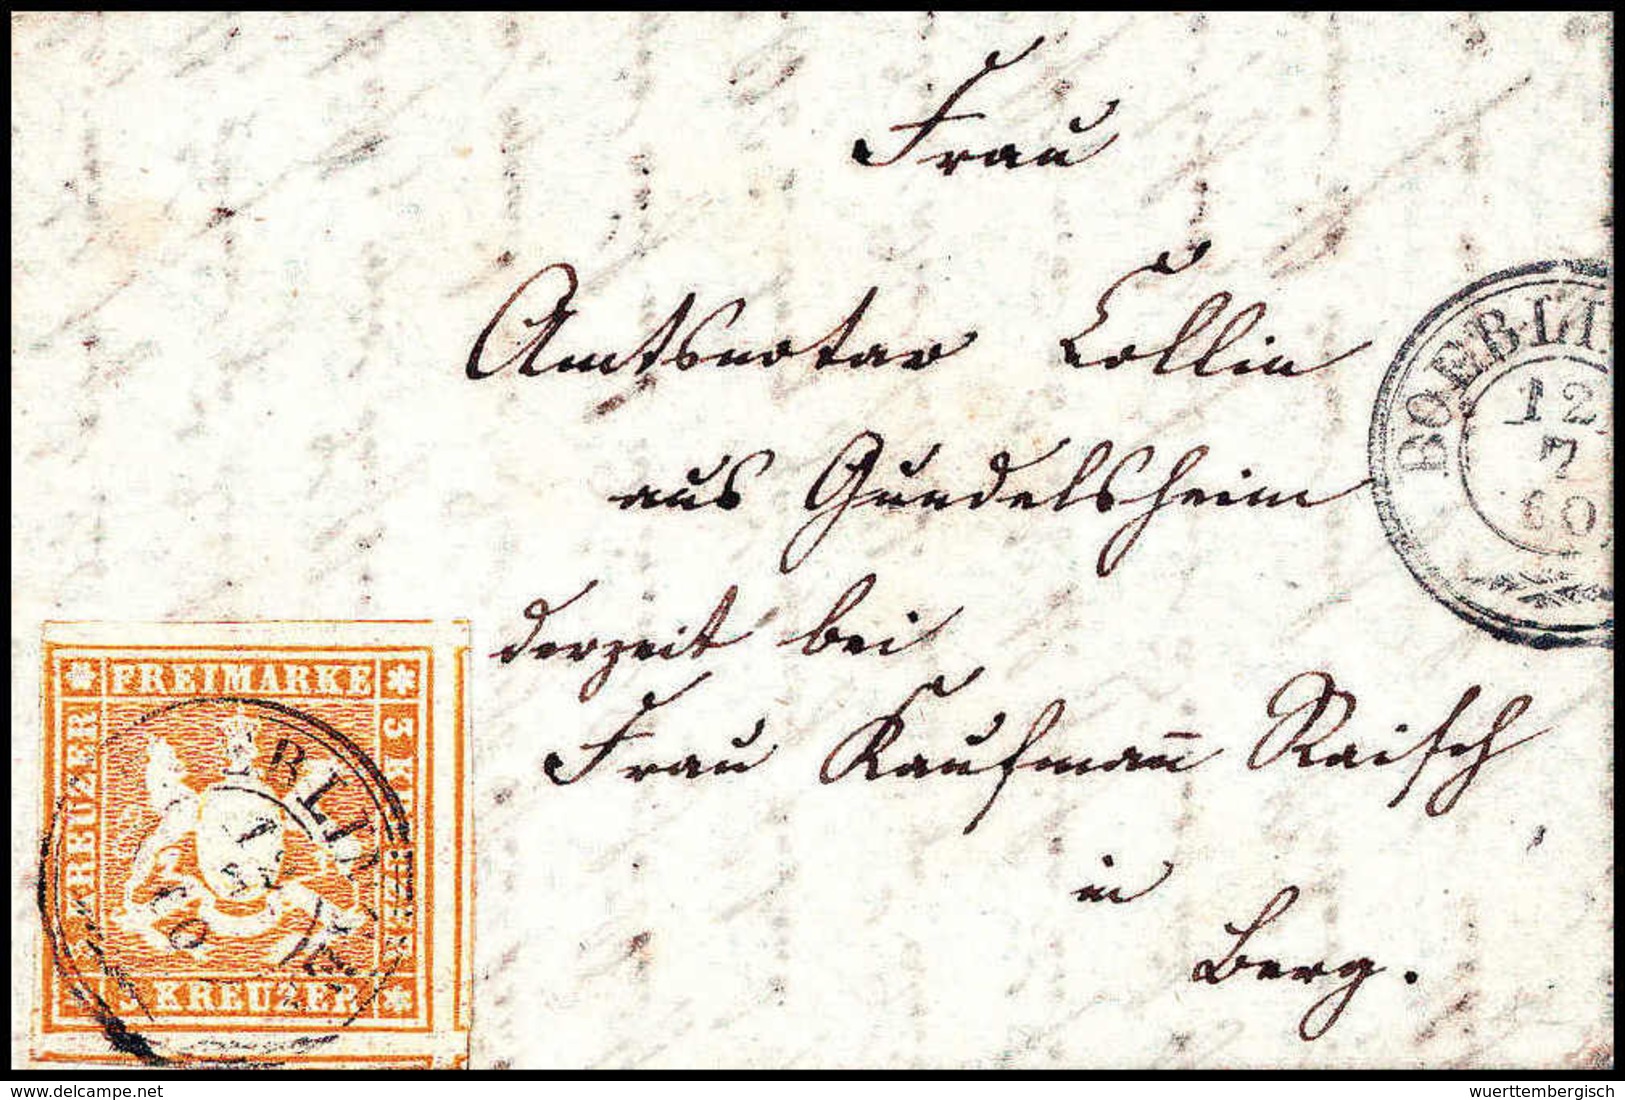 Frau
Amtsnotar Collin
aus Gundelsheim
derzeit bei
Frau Kaufmañ Raisch
in
Berg.
BOEBLIN
12
7
60
FREIMARKE
3 KREUZER
KREUZER
EBLIN
12
7
60
www.delcampe.net
wuerttembergisch